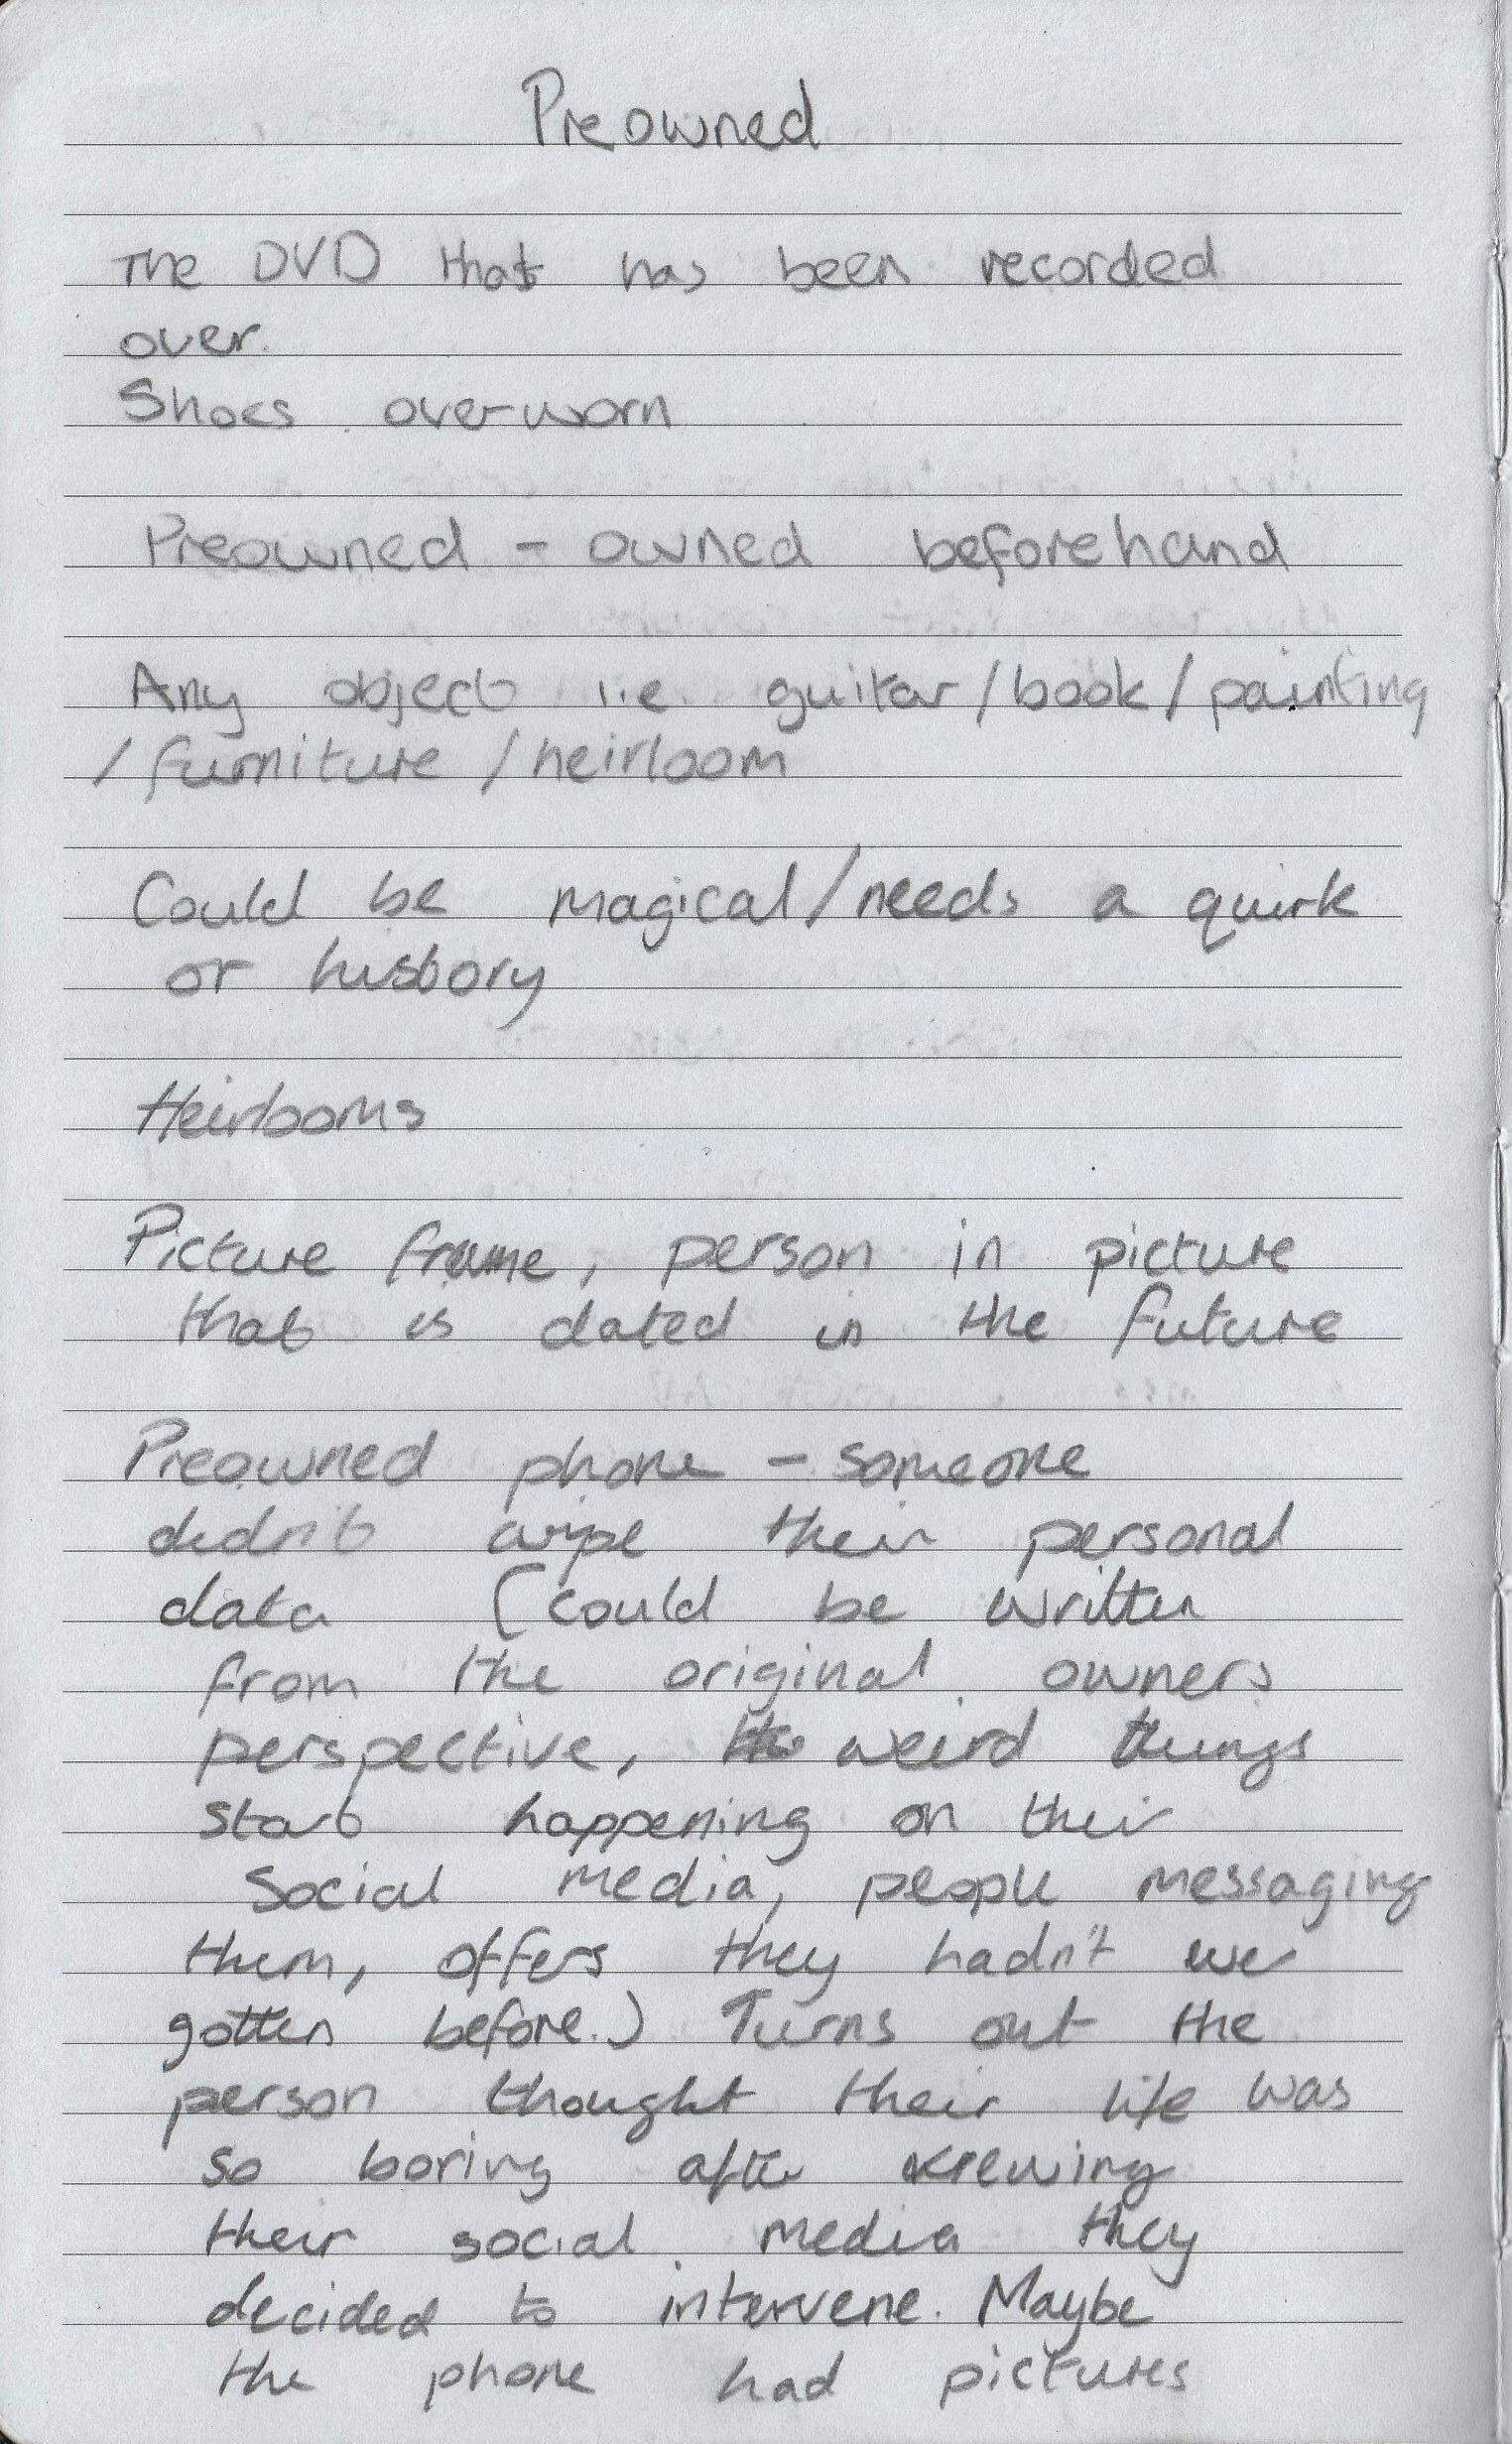 Preowned
The DVD that has been recorded
over.
Shoes overworn
Preowned - owned beforehand
Any object i.e. guitar/book/painting
/furniture/heirloom
Could be magical/needs a quirk
or history
Heirlooms
Picture frame, person in picture
that is dated in the future
Preowned phone - someone
didn't wipe their personal
data (could be written
from the original owners
perspective, weird things
start happening on their
social media, people messaging
them, offers they hadn't
gotten before.) Turns out the
person thought their life was
so boring after viewing
their social media they
decided to intervene. Maybe
the phone had pictures